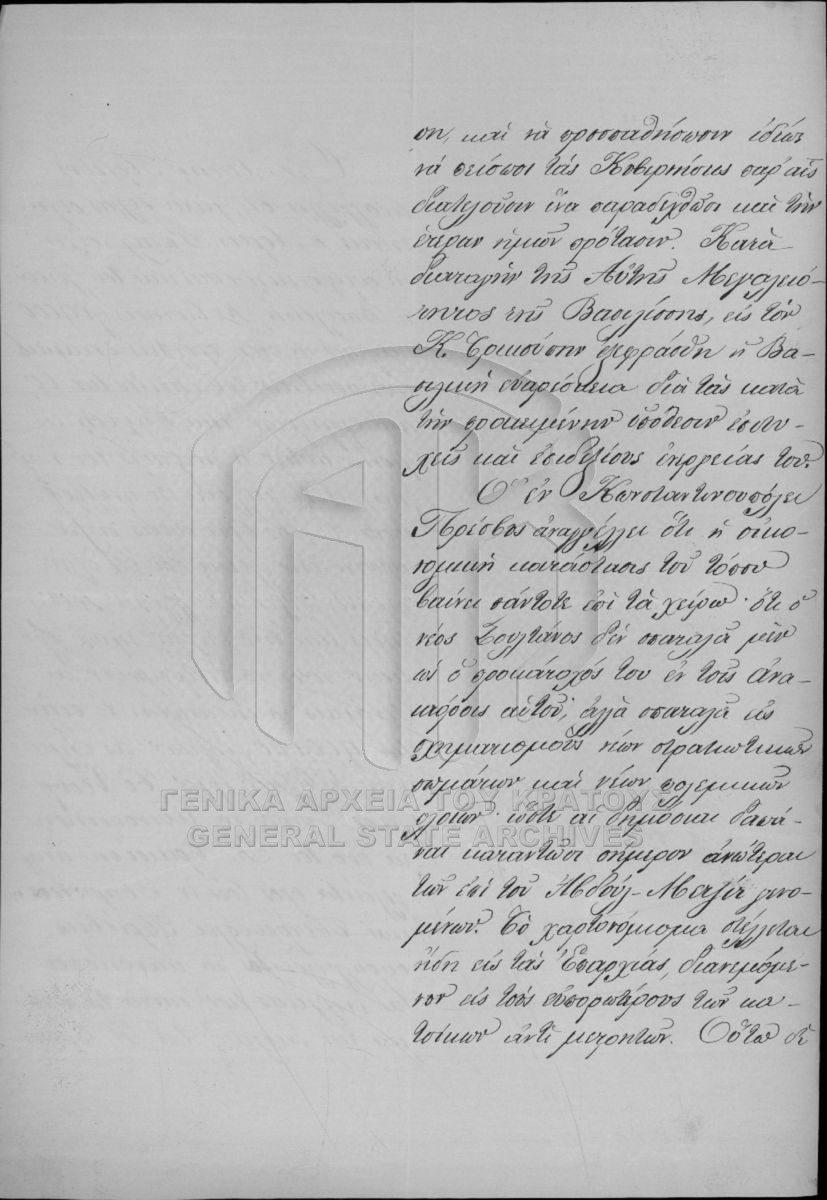 ση, καὶ νὰ προσπαθήσωσιν ἰδίως
νὰ πείσωσι τὰς Κυβερνήσεις παρ' αἷς
διατελοῦσιν ἵνα παραδεχθῶσι καὶ τὴν
ἑτέραν ἡμῶν πρότασιν. Κατὰ
διαταγὴν τῆς Αὐτῆς Μεγαλειό-
τητος τῆς Βασιλίσσης, εἰς τὸν
Κ. Τρικούπην ἐξεφράσθη ἡ Βα-
σιλικὴ εὐαρέσκεια διὰ τὰς κατὰ
τὴν προκειμένην ὑπόθεσιν ἐπιτυ-
χεῖς καὶ ἐπιδεξίους ἐνεργείας του.
Ὁ ἐν Κωνσταντινουπόλει
Πρέσβυς ἀναγγέλλει ὅτι ἡ οἰκο-
νομικὴ κατάστασις τοῦ τόπου
βαίνει πάντοτε ἐπὶ τὰ χείρω· ὅτι ὁ
νέος Σουλτάνος δὲν σπαταλᾷ μὲν
ὡς ὁ προκάτοχός του ἐν τοῖς ἀνα-
κτόροις αὐτοῦ, ἀλλὰ σπαταλᾷ εἰς
σχηματισμοὺς νέων στρατιωτικῶν
σωμάτων καὶ νέων πολεμικῶν
πλοίων· ὥστε αἱ δημόσιαι δαπά-
ναι καταντῶσι σήμερον ἀνώτεραι
τῶν ἐπὶ τοῦ Ἀβδούλ-Μετζὶτ γενο-
μένων. Τὸ χαρτονόμισμα στέλλεται
ἤδη εἰς τὰς Ἐπαρχίας, διανεμόμε-
νον εἰς τοὺς εὐπορωτέρους τῶν κα-
τοίκων ἀντὶ μετρητῶν. Οὕτω δὲ
ΓΕΝΙΚΑ ΑΡΧΕΙΑ ΤΟΥ ΚΡΑΤΟΥΣ
GENERAL STATE ARCHIVES